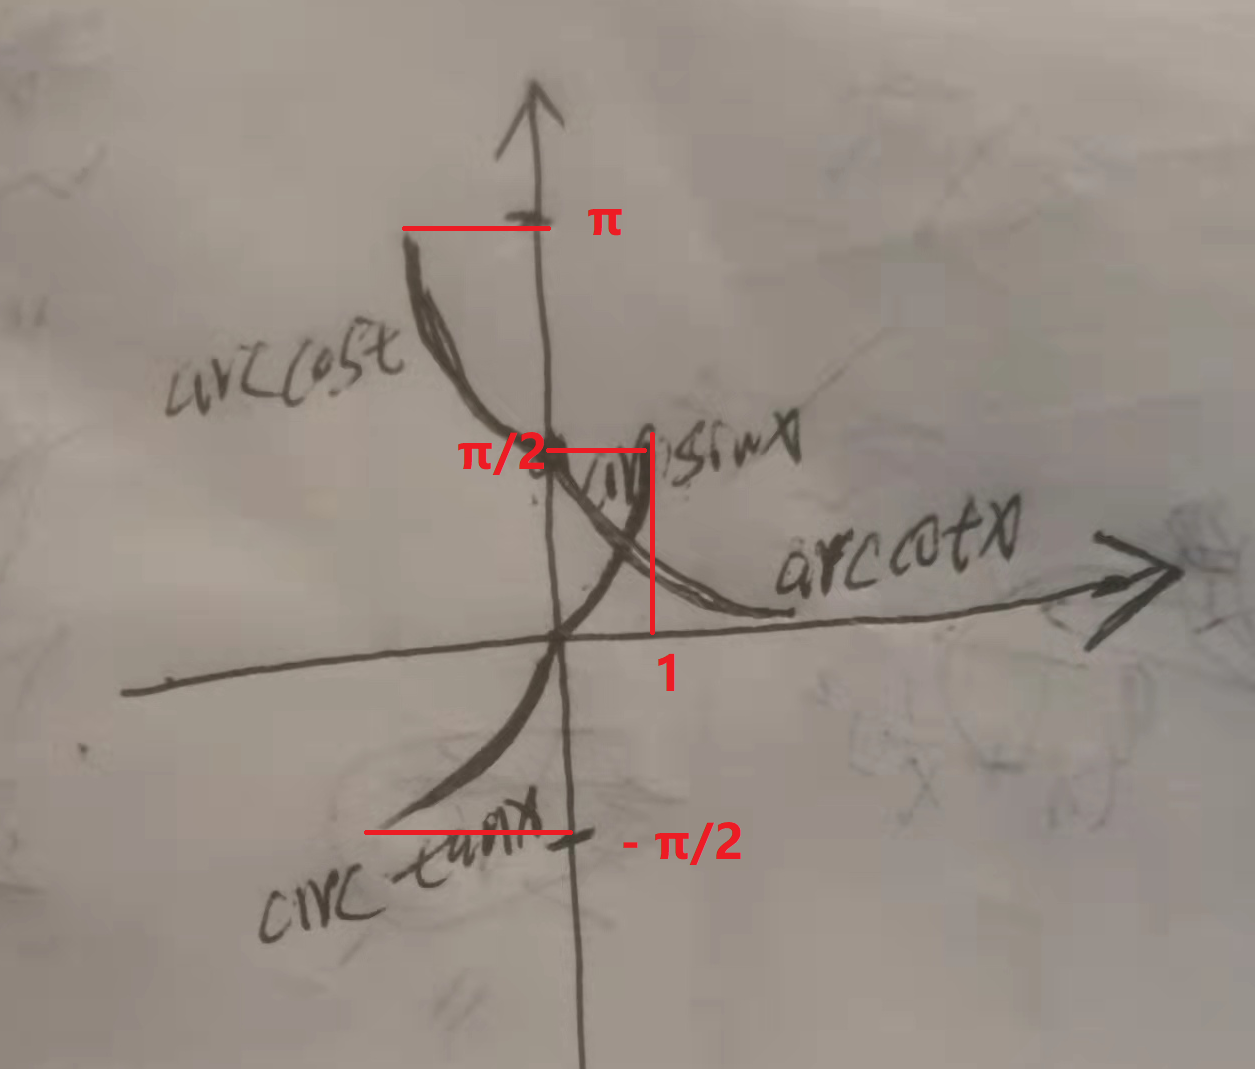 π
arccost
π/2
arcsinx
arccotx
1
- π/2
arctanx